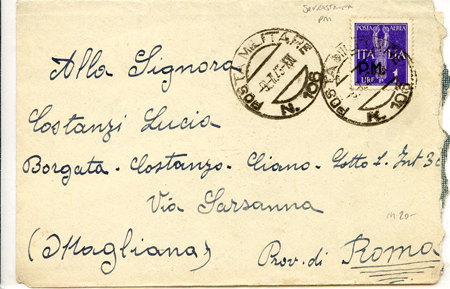 pm
POSTA MILITARE
N. 106
POSTA AEREA
ITALIA
P.M.
LIRE 1
POSTA MILITARE
N. 106
Alla Signora
Costanzi Lucia
Borgata - Costanzo - Ciano - Lotto 2. Int 30
Via Sarsanna
(Magliana) Prov. di Roma